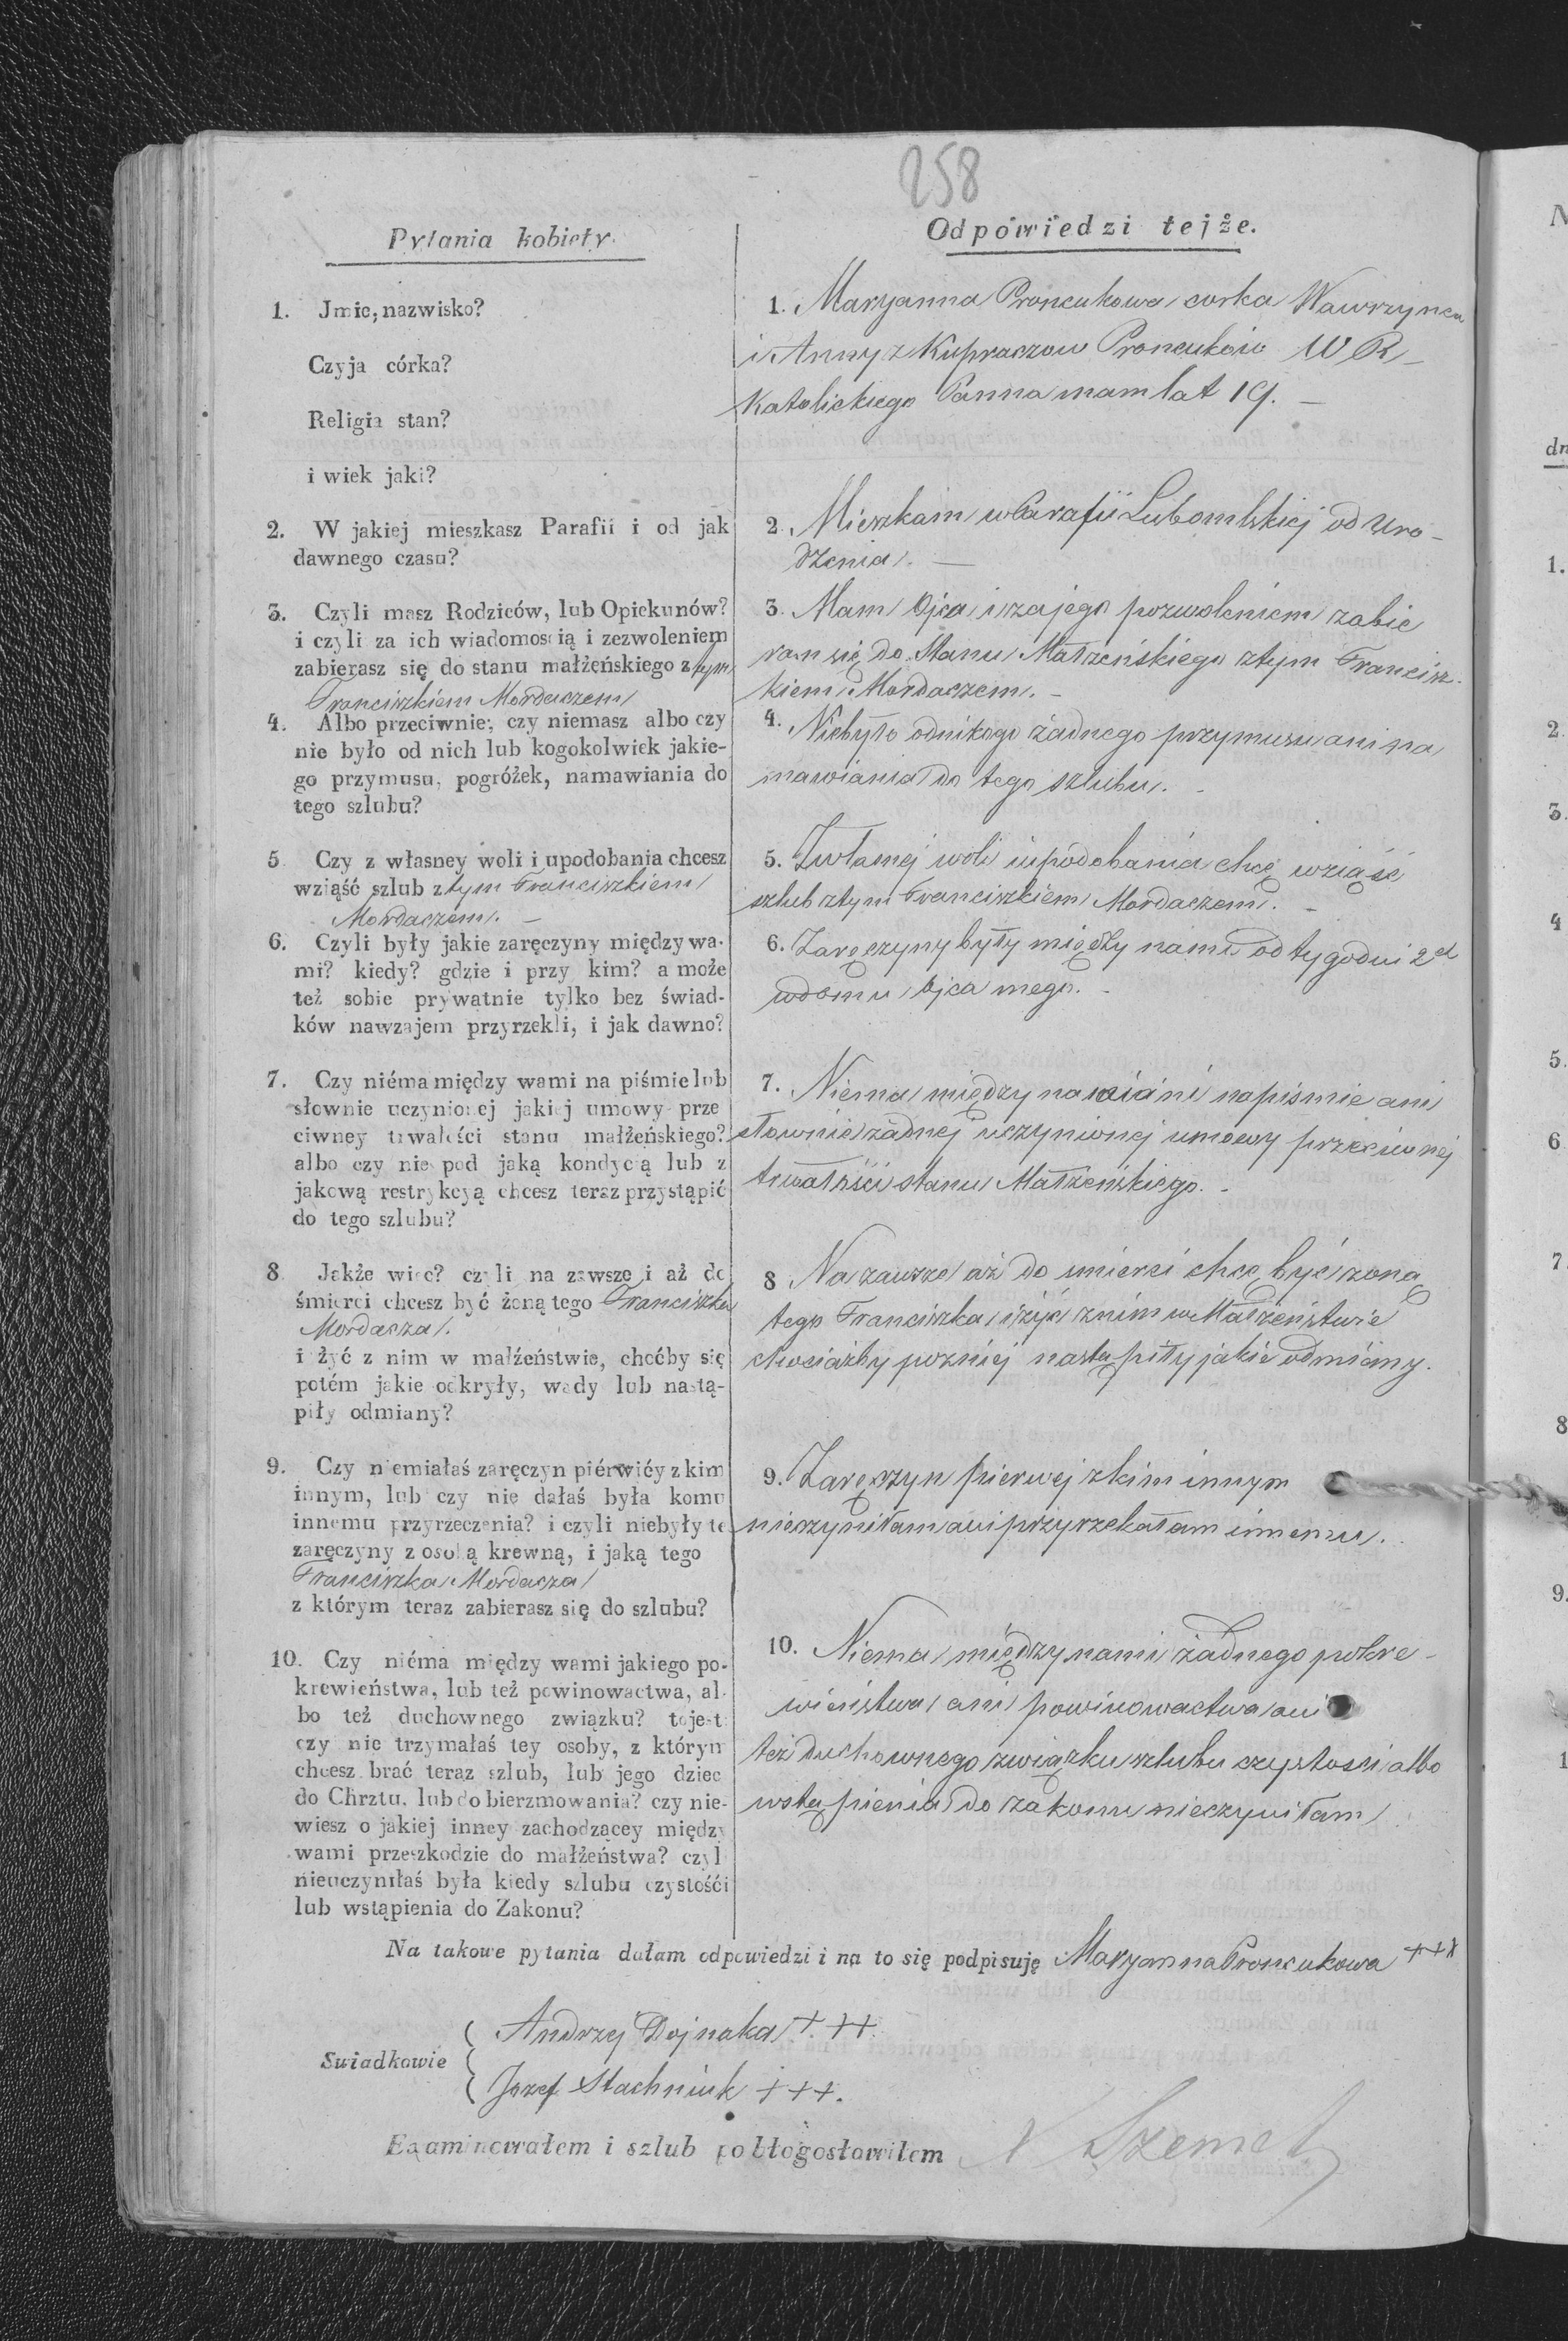 258
Pytania kobiety.
1. Jmie, nazwisko?
Czyja córka?
Religia stan?
i wiek jaki?
2. W jakiej mieszkasz Parafii i od jak
dawnego czasu?
3. Czyli masz Rodziców, lub Opiekunów?
i czyli za ich wiadomością i zezwoleniem
zabierasz się do stanu małżeńskiego z tym
Franciszkiem Mordaczem
4. Albo przeciwnie; czy niemasz albo czy
nie było od nich lub kogokolwiek jakie-
go przymusu, pogróżek, namawiania do
tego szlubu?
5 Czy z własney woli i upodobania chcesz
wziąść szlub z tym Franciszkiem
Mordaczem. —
6. Czyli były jakie zaręczyny między wa-
mi? kiedy? gdzie i przy kim? a może
też sobie prywatnie tylko bez świad-
ków nawzajem przyrzekli, i jak dawno?
7. Czy niéma między wami na piśmie lub
słownie uczynionej jakiej umowy prze
ciwney trwałości stanu małżeńskiego?
albo czy nie pod jaką kondycią lub z
jakową restrykcyą chcesz teraz przystąpić
do tego szlubu?
8 Jakże więc? czyli na zawsze i aż do
śmierci chcesz być żoną tego Franciszka
Mordacza.
i żyć z nim w małżeństwie, choćby się
potém jakie odkryły, wady lub nastą-
piły odmiany?
9. Czy niemiałaś zaręczyn piérwićy z kim
innym, lub czy nie dałaś była komu
innemu przyrzeczenia? i czyli niebyły te
zaręczyny z osobą krewną, i jaką tego
Franciszka Mordacza
z którym teraz zabierasz się do szlubu?
10. Czy niéma między wami jakiego po-
krewieństwa, lub też powinowactwa, al-
bo też duchownego związku? tojest
czy nie trzymałaś tey osoby, z którym
chcesz brać teraz szlub, lub jego dziec
do Chrztu, lub do bierzmowania? czy nie-
wiesz o jakiej inney zachodzącey między
wami przeszkodzie do małżeństwa? czyl
nieuczyniłaś była kiedy szlubu czystośći
lub wstąpienia do Zakonu?
Odpowiedzi tejże.
1. Maryanna Proncukowa corka Wawrzynca
i Anny z Kupraczow Proncuków W R –
Katolickiego Panna mam lat 19. –
2. Mieszkam w Parafii Lubomlskiej od Uro-
dzenia. —
3. Mam Ojca i za jego pozwoleniem zabie
ram się do Stanu Małżeńskiego z tym Francisz-
kiem Mordaczem. –
4. Niebyło od nikogo żadnego przymusu ani na
mawiania do tego szlubu. –
5. Z własnej woli i upodobania chcę wziąść
szlub z tym Franciszkiem Mordaczem. –
6. Zaręczyny były między nami od tygodni 2ch
w domu Ojca mego. –
7. Niema między nami ani na piśmie ani
słownie żadnej uczynionej umowy przeciwnej
trwałości stanu Małżeńskiego. –
8 Na zawsze aż do smierci chcę być żoną
tego Franciszka i żyć z nim w Małżeństwie
chociażby pozniej nastąpiły jakie odmiany.
9. Zaręczyn pierwej z kim innym
nieczyniłam ani przyrzekałam innemu.
10. Niema między nami żadnego pokre-
wieństwa ani powinowactwa ani
też duchownego związku szlubu czystości albo
wstąpienia do zakonu nieczyniłam
Na takowe pytania dałam odpowiedzi i na to się podpisuję Maryanna Proncukowa +++
Swiadkowie
Andrzy Dojnaka +++.
Jozef Stachniuk +++.
Examinowałem i szlub pobłogosławiłem N Szemet
N
dn
1.
2.
3.
4
5.
6
7
8
9.
1